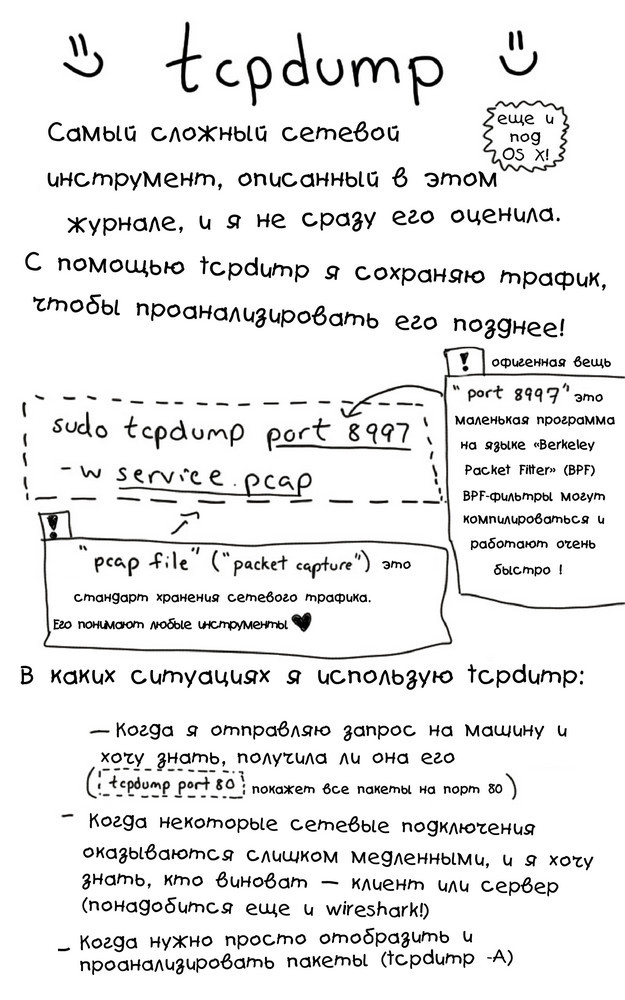 tcpdump
еще и
под
OS X!
Самый сложный сетевой
инструмент, описанный в этом
журнале, и я не сразу его оценила.
С помощью tcpdump я сохраняю трафик,
чтобы проанализировать его позднее!
! офигенная вещь
sudo tcpdump port 8997
-w service.pcap
"port 8997" это
маленькая программа
на языке «Berkeley
Packet Filter» (BPF)
BPF-фильтры могут
компилироваться и
работают очень
быстро !
!
"pcap file" ("packet capture") это
стандарт хранения сетевого трафика.
Его понимают любые инструменты
В каких ситуациях я использую tcpdump:
— Когда я отправляю запрос на машину и
хочу знать, получила ли она его
(tcpdump port 80 покажет все пакеты на порт 80)
- Когда некоторые сетевые подключения
оказываются слишком медленными, и я хочу
знать, кто виноват — клиент или сервер
(понадобится еще и wireshark!)
- Когда нужно просто отобразить и
проанализировать пакеты (tcpdump -A)